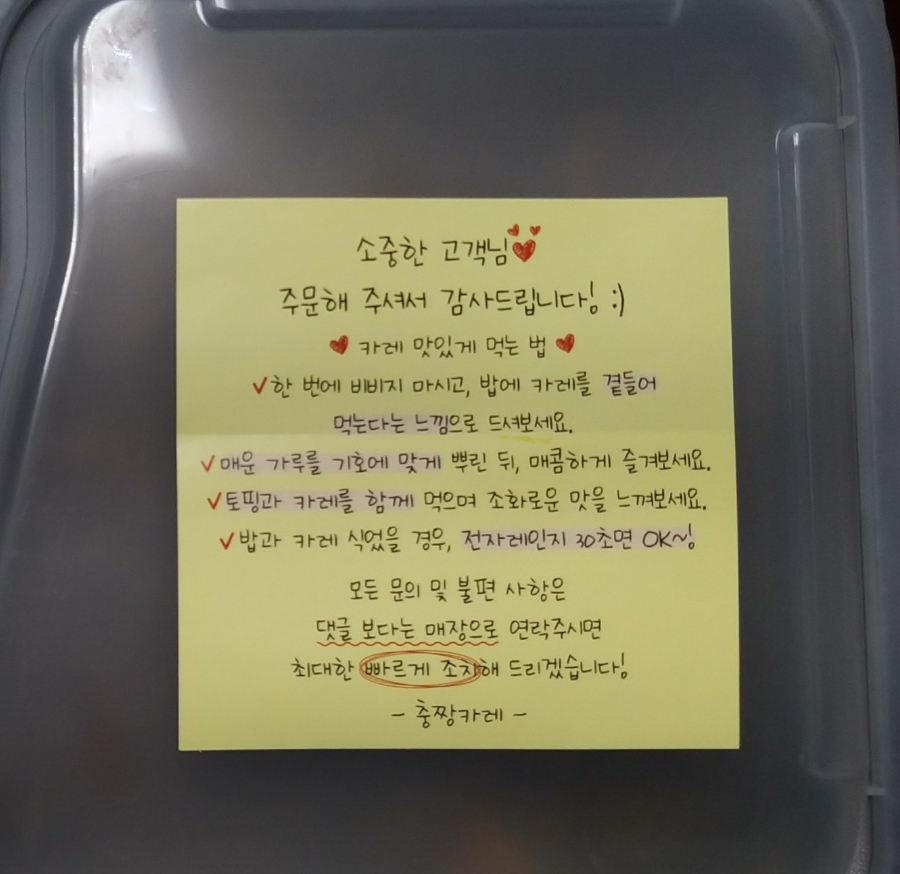 소중한 고객님
주문해 주셔서 감사드립니다! :)
카레 맛있게 먹는 법
한 번에 비비지 마시고, 밥에 카레를 곁들어
먹는다는 느낌으로 드셔보세요.
매운 가루를 기호에 맞게 뿌린 뒤, 매콤하게 즐겨보세요.
토핑과 카레를 함께 먹으며 조화로운 맛을 느껴보세요.
밥과 카레 식었을 경우, 전자레인지 30초면 OK~!
모든 문의 및 불편 사항은
댓글 보다는 매장으로 연락주시면
최대한 빠르게 조치해 드리겠습니다!
- 충짱카레 -